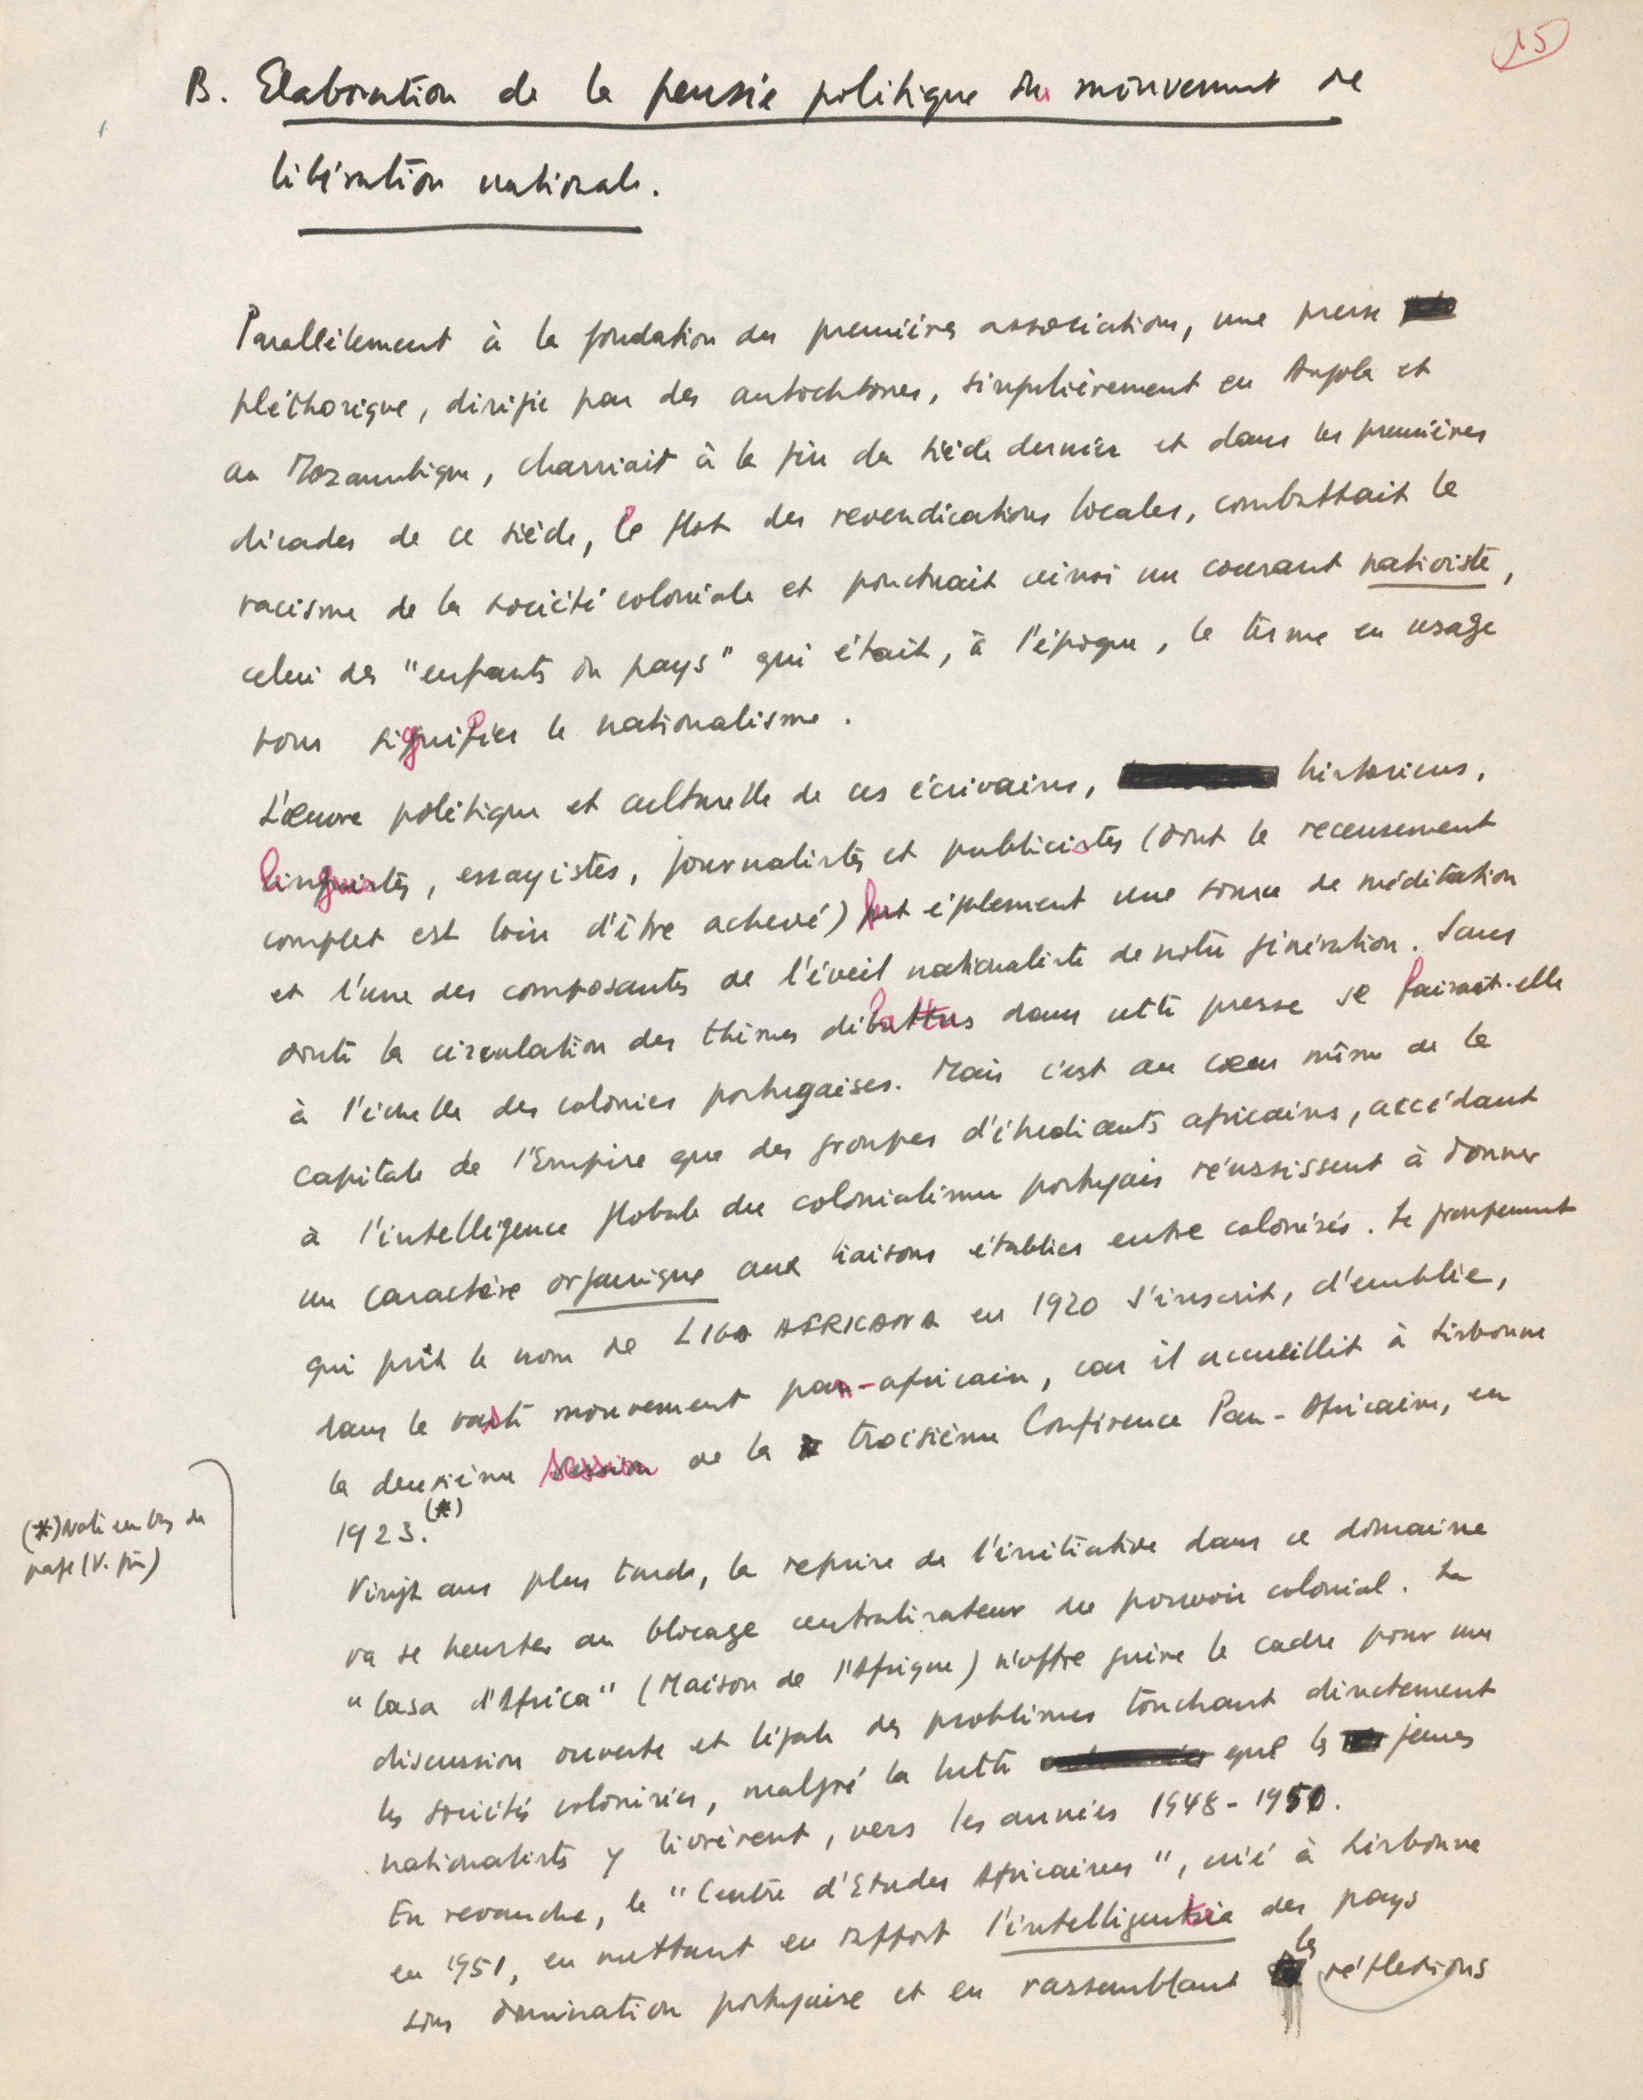 15
B. Elaboration de la pensée politique du mouvement de
libération nationale.
Parallèlement à la fondation des premières associations, une presse
pléthorique, dirigée par des autochtones, singulièrement en Angola et
au Mozambique, charriait à la fin du siècle dernier et dans les premières
décades de ce siècle, le flot des revendications locales, combattait le
racisme de la société coloniale et ponctuait ainsi un courant nativiste,
celui des "enfants du pays" qui était, à l'époque, le terme en usage
pour signifier le nationalisme.
L'œuvre politique et culturelle de ces écrivains, historiens,
linguistes, essayistes, journalistes et publicistes (dont le recensement
complet est loin d'être achevé) fut également une source de méditation
et l'une des composantes de l'éveil nationaliste de notre génération. Sans
doute la circulation des thèmes débattus dans cette presse se faisait-elle
à l'échelle des colonies portugaises. Mais c'est au cœur même de la
capitale de l'Empire que des groupes d'étudiants africains, accédant
à l'intelligence globale du colonialisme portugais réussissent à donner
un caractère organique aux liaisons établies entre colonisés. Le groupement
qui prit le nom de LIGA AFRICANA en 1920 s'inscrit, d'emblée,
dans le vaste mouvement pan-africain, car il accueillit à Lisbonne
la deuxième session de la troisième Conférence Pan-Africaine, en
1923.(*)
(*) Note en bas de
page (V. fin)
Vingt ans plus tard, la reprise de l'initiative dans ce domaine
va se heurter au blocage centralisateur du pouvoir colonial. La
"Casa d'Africa" (Maison de l'Afrique) n'offre guère le cadre pour une
discussion ouverte et légale des problèmes touchant directement
les sociétés colonisées, malgré la lutte que les jeunes
nationalistes y livrèrent, vers les années 1948-1950.
En revanche, le "Centre d'Etudes Africaines", créé à Lisbonne
en 1951, en mettant en rapport l'intelligentsia des pays
sous domination portugaise et en rassemblant les réflexions